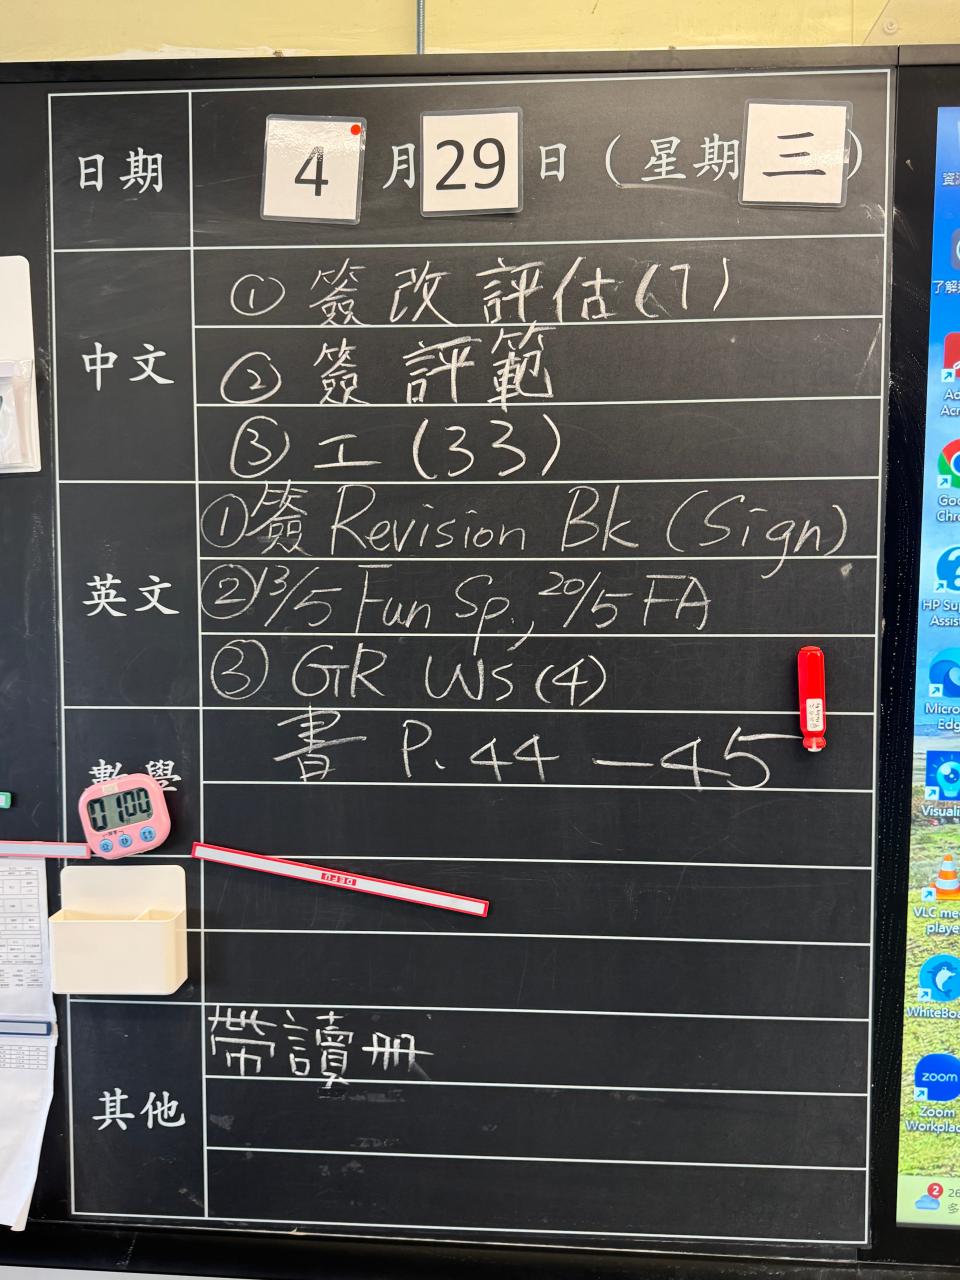 日期 4月29日（星期三）
中文
① 簽改評估(7)
② 簽評範
③ 工(33)
英文
① 簽 Revision Bk (Sign)
② 13/5 Fun Sp., 20/5 FA
③ GR WS (4)
數學
書 P. 44 — 45
0 100
DEFU
其他
帶讀冊
資
了解
Ad
Acr
Goo
Chr
HP Sup
Assist
Micro
Edg
Visuali
VLC me
playe
WhiteBoa
zoom
Zoom
Workplac
2
26
多